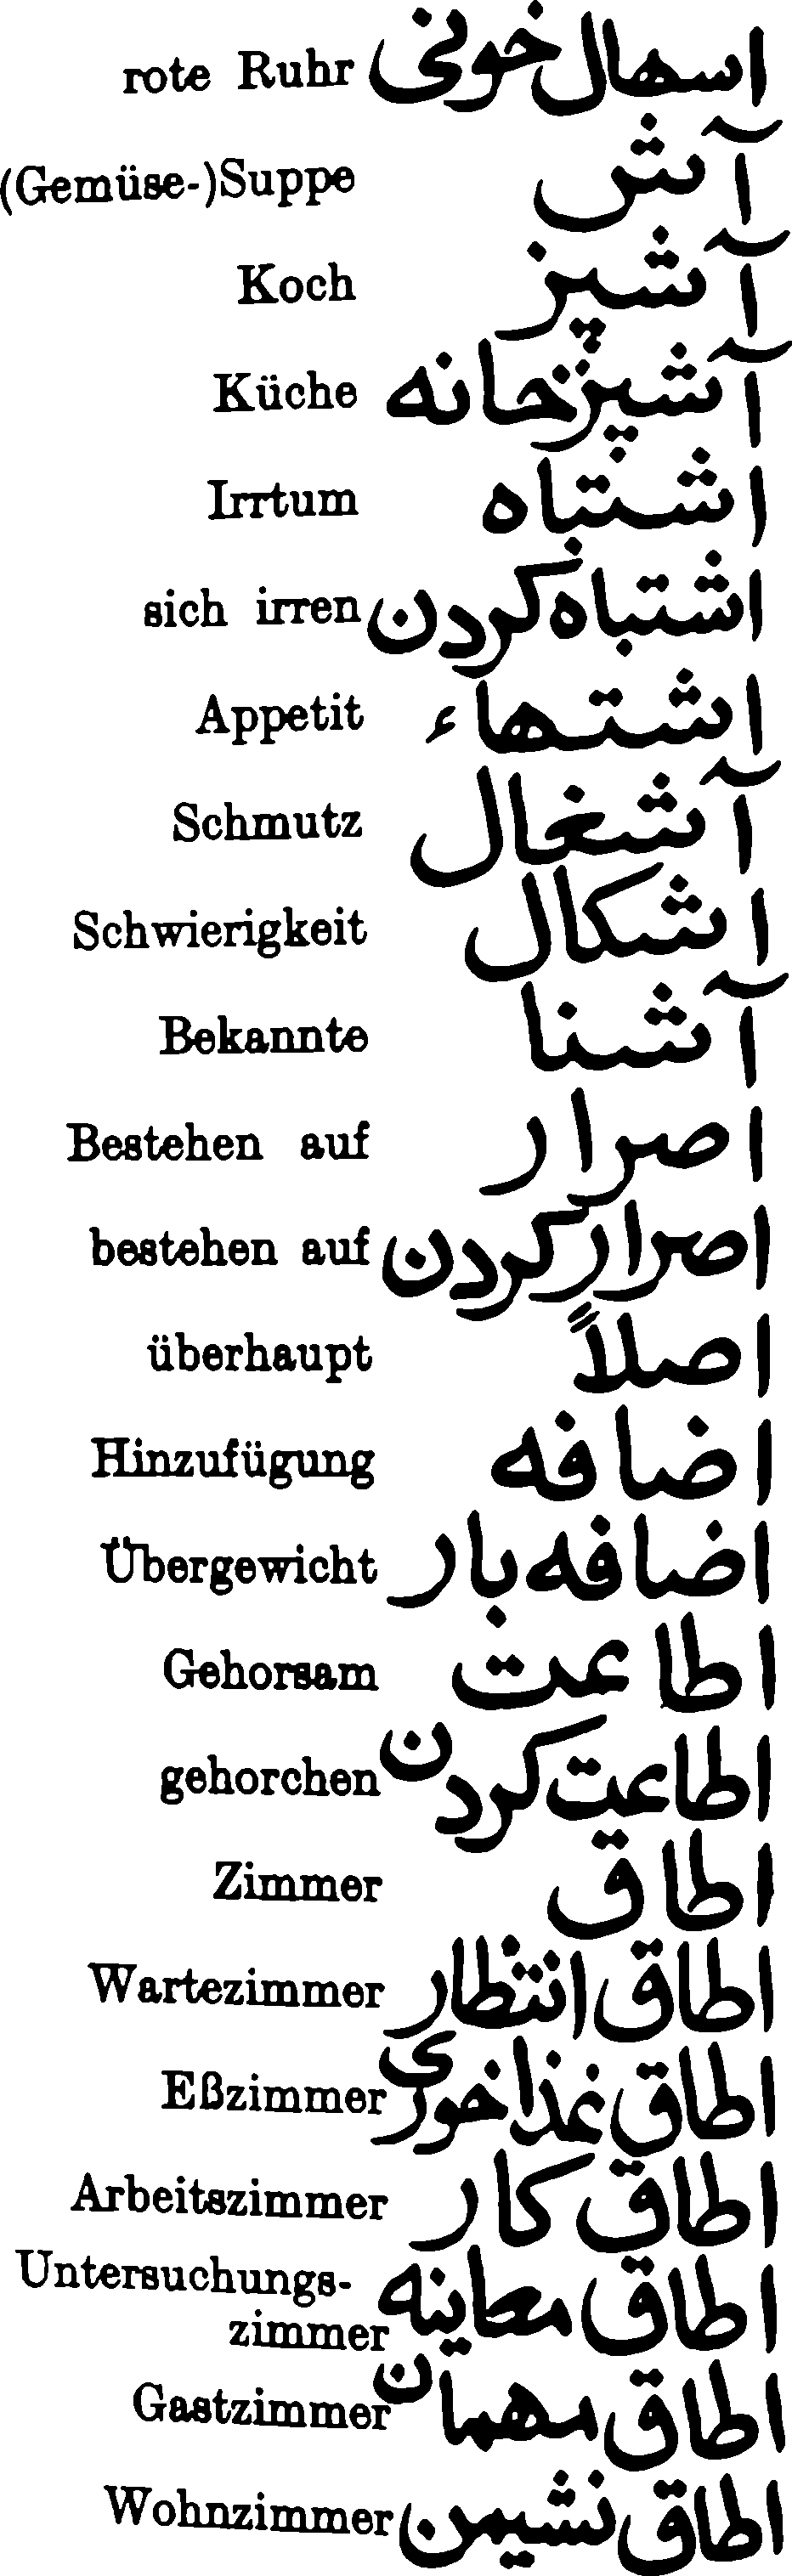 rote Ruhr اسهال خونی
(Gemüse-)Suppe آش
Koch آشپز
Küche آشپزخانه
Irrtum اشتباه
sich irren اشتباه کردن
Appetit اشتهاء
Schmutz آشغال
Schwierigkeit اشکال
Bekannte آشنا
Bestehen auf اصرار
bestehen auf اصرار کردن
überhaupt اصلاً
Hinzufügung اضافه
Übergewicht اضافه بار
Gehorsam اطاعت
gehorchen اطاعت کردن
Zimmer اطاق
Wartezimmer اطاق انتظار
Eßzimmer اطاق غذاخوری
Arbeitszimmer اطاق کار
Untersuchungs-
zimmer اطاق معاینه
Gastzimmer اطاق مهمان
Wohnzimmer اطاق نشیمن